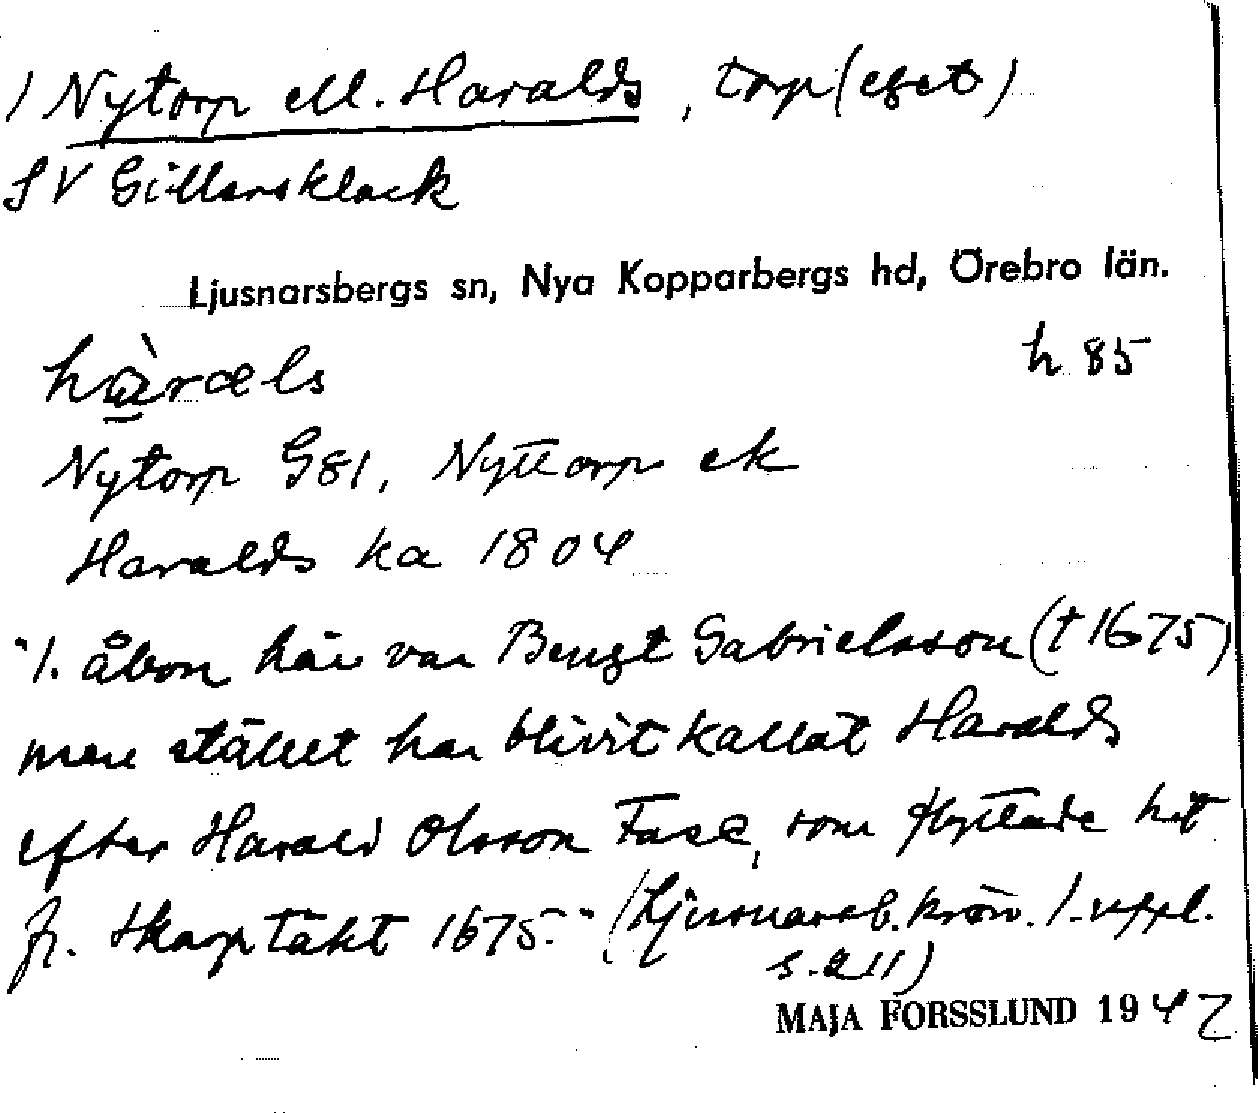 1 Nytorp ell. Haralds, torp (eget)
SV Gillersklack
Ljusnarsbergs sn, Nya Kopparbergs hd, Örebro län.
hàræls h 85
Nytorp G81, Nyttorp ek
Haralds ka 1804
"1. åbon här var Bengt Gabrielsson († 1675)
men stället har blivit kallat Haralds
efter Harald Olsson Fase, som flyttade hit
fr. Skaptäkt 1675." (Ljusnarsb. krön. 1. uppl.
s. 211)
MAJA FORSSLUND 1942